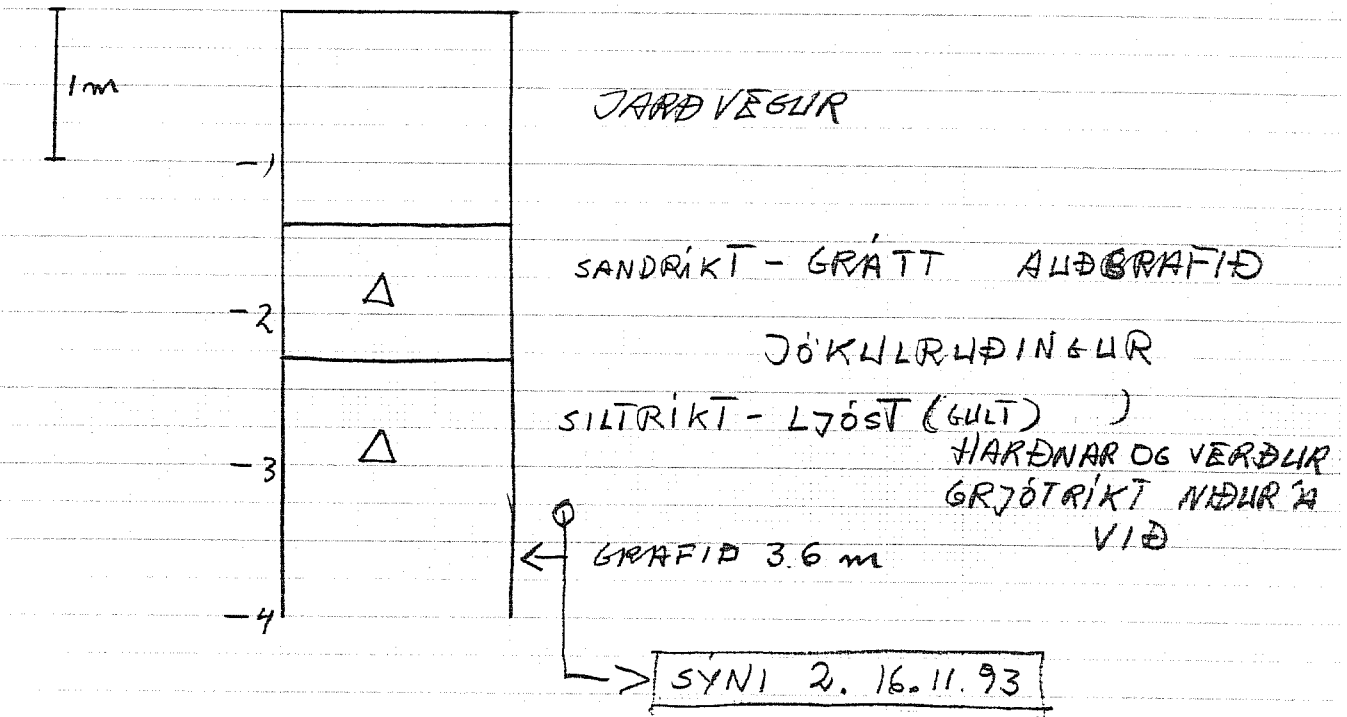 1m
JARÐVEGUR
-1
SANDRÍKT - GRÁTT AUÐGRAFIÐ
-2
JÖKULRUÐINGUR
SILTRÍKT - LJÓST (GULT)
HARÐNAR OG VERÐUR
-3
GRJÓTRÍKT NIÐUR Á
VIÐ
GRAFIÐ 3.6 m
-4
SÝNI 2. 16.11.93